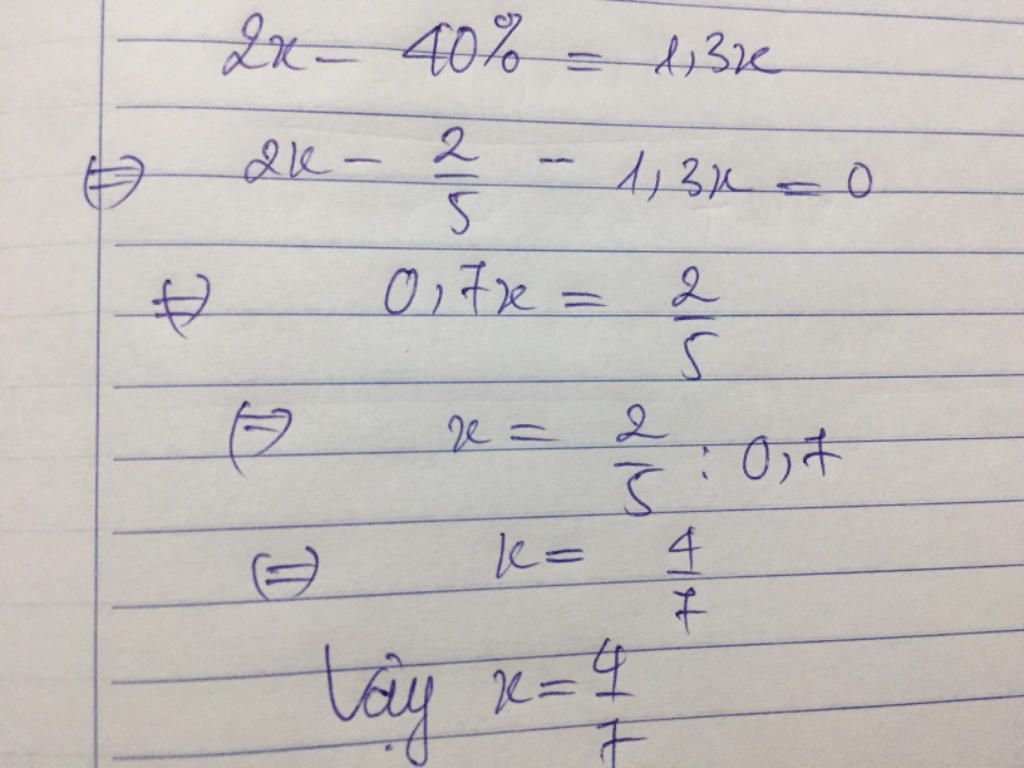 2x - 40% = 1,3x
⇔ 2x - 2/5 - 1,3x = 0
⇔ 0,7x = 2/5
⇔ x = 2/5 : 0,7
⇔ x = 4/7
Vậy x = 4/7